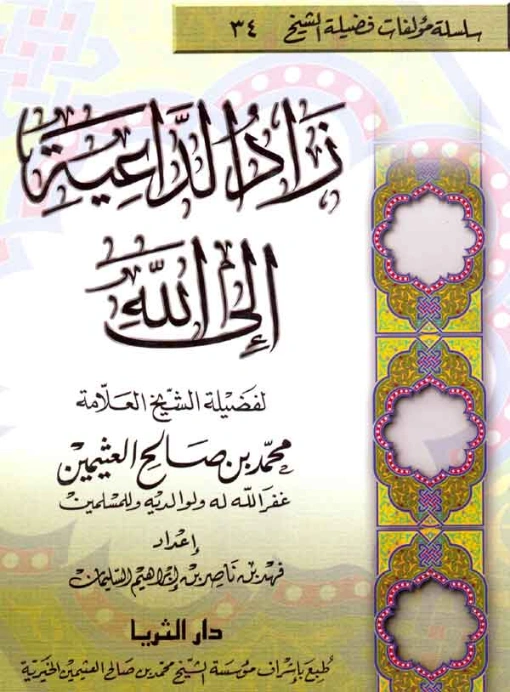 سلسلة مؤلفات فضيلة الشيخ ٣٤
زَادُ الدَّاعِيَة
إِلَى اللَّهِ
لفضيلة الشيخ العلّامة
محمّد بن صالح العثيمين
غفر الله له ولوالديه وللمسلمين
إعداد
فهد بن ناصر بن إبراهيم السليمان
دار الثريا
طُبع بإشراف مؤسسة الشيخ محمد بن صالح العثيمين الخيرية